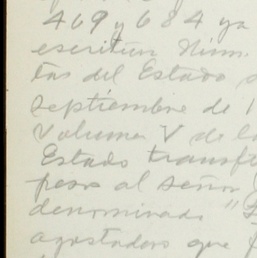 469 y 684 ya
escritura Núm.
tas del Estado
septiembre de 1
Volumen V de la
Estado transf
pesos al señor
denominado "
agostadero que